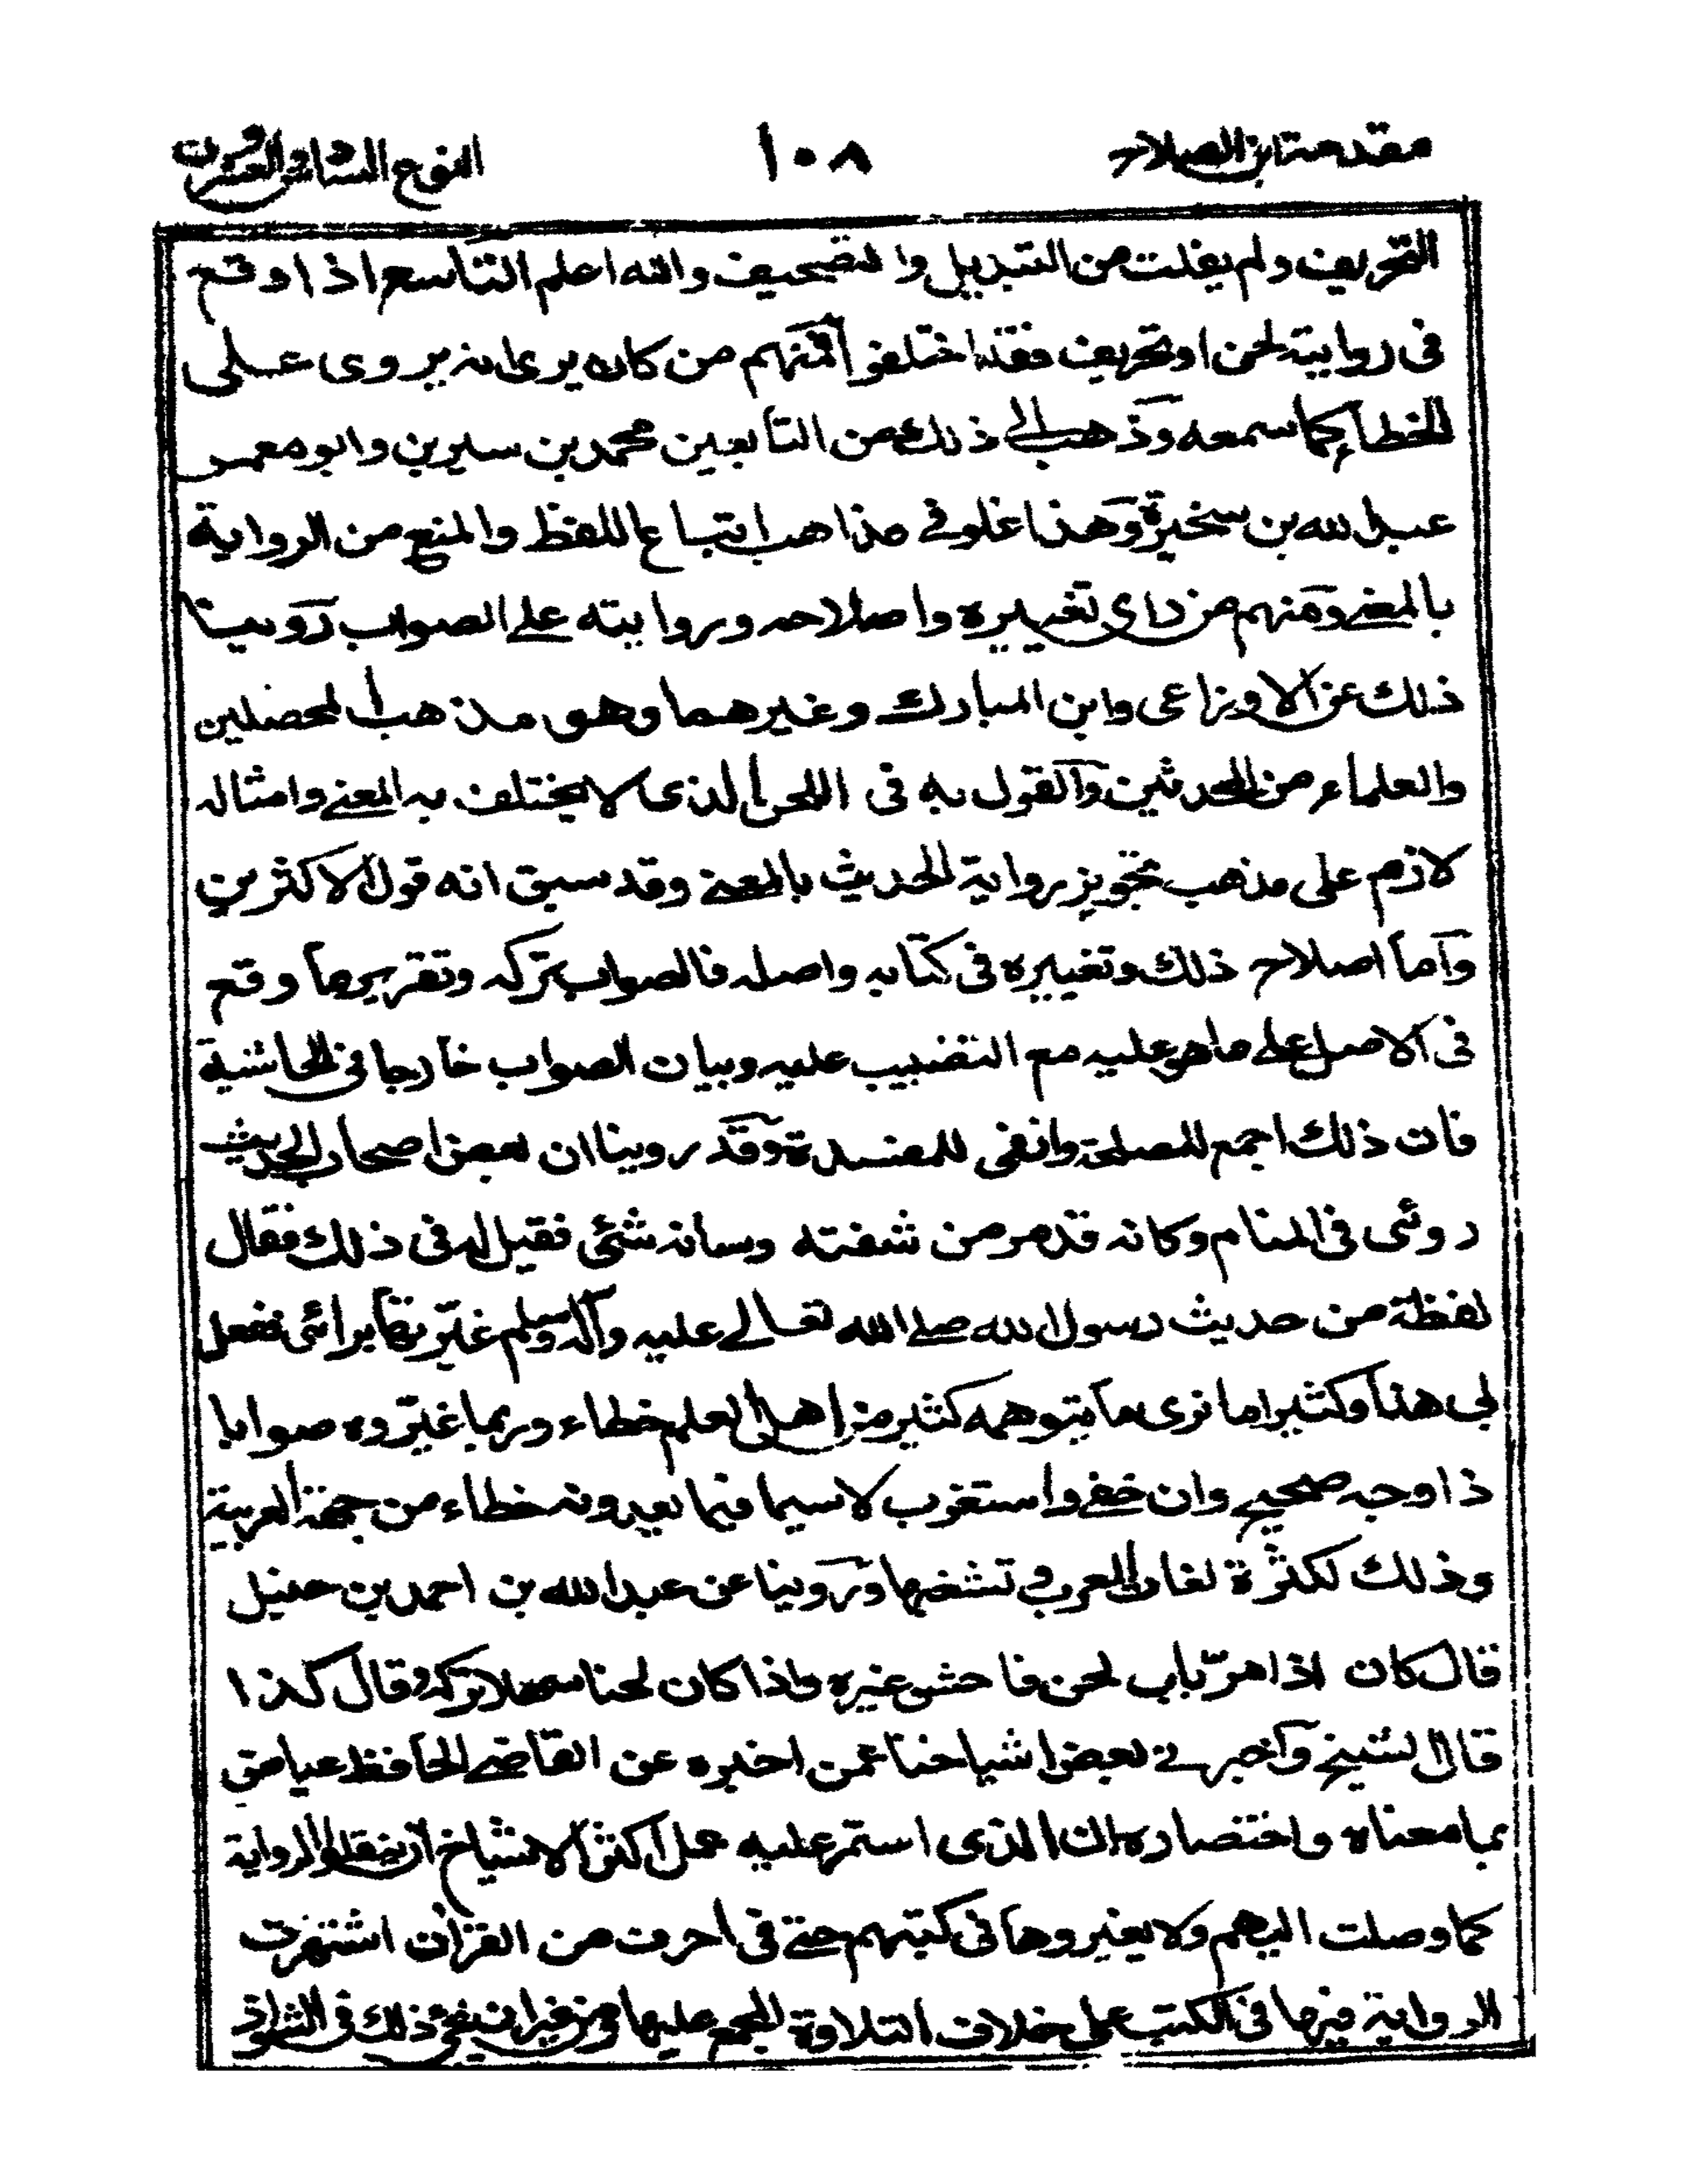 مقدمة ابن الصلاح
١٠٨
النوع السادس والعشرون
التحريف ولم يفلت من التبديل والتصحيف والله اعلم التاسع اذا وقع
فى روايته لحن او تحريف فقد اختلفوا فمنهم من كان يرى انه يروى على
الخطاء كما سمعه وذهب الى ذلك من التابعين محمد بن سيرين وابو معمر
عبد الله بن سخبرة وهذا غلو فى مذاهب اتباع اللفظ والمنع من الرواية
بالمعنى ومنهم من راى تغييره واصلاحه وروايته على الصواب روينا
ذلك عن الاوزاعى وابن المبارك وغيرهما وهو مذهب المحصلين
والعلماء من المحدثين والقول به فى اللحن الذى لا يختلف به المعنى وامثاله
لازم على مذهب تجويز رواية الحديث بالمعنى وقد سبق انه قول الاكثرين
واما اصلاح ذلك وتغييره فى كتابه واصله فالصواب تركه وتقرير ما وقع
فى الاصل على ما هو عليه مع التضبيب عليه وبيان الصواب خارجا فى الحاشية
فان ذلك اجمع للمصلحة وانفى للمفسدة وقد روينا ان بعض اصحاب الحديث
روئى فى المنام وكانه قد مر من شفته ولسانه شئى فقيل له فى ذلك فقال
لفظة من حديث رسول الله صلى الله تعالى عليه وآله وسلم غيرتها برائى ففعل
بى هذا وكثيرا ما نرى ما يتوهمه كثير من اهل العلم خطاء وربما غيروه صوابا
ذا وجه صحيح وان خفى واستغرب لا سيما فيما يعدونه خطاء من جهة العربية
وذلك لكثرة لغات العرب وتشعبها وروينا عن عبد الله بن احمد بن حنبل
قال كان اذا مر بابى لحن فاحش غيره واذا كان لحنا سهلا تركه وقال كذا
قال الشيخ واخبرنى بعض اشياخنا عمن اخبره عن القاضى الحافظ عياض
بما معناه واختصاره ان الذى استمر عليه عمل اكثر الاشياخ ان ينقلوا الرواية
كما وصلت اليهم ولا يغيروها فى كتبهم حتى فى احرف من القرآن اشتهرت
الرواية فيها فى الكتب على خلاف التلاوة المجمع عليها ومن غير ان يجئى ذلك فى الشواذ